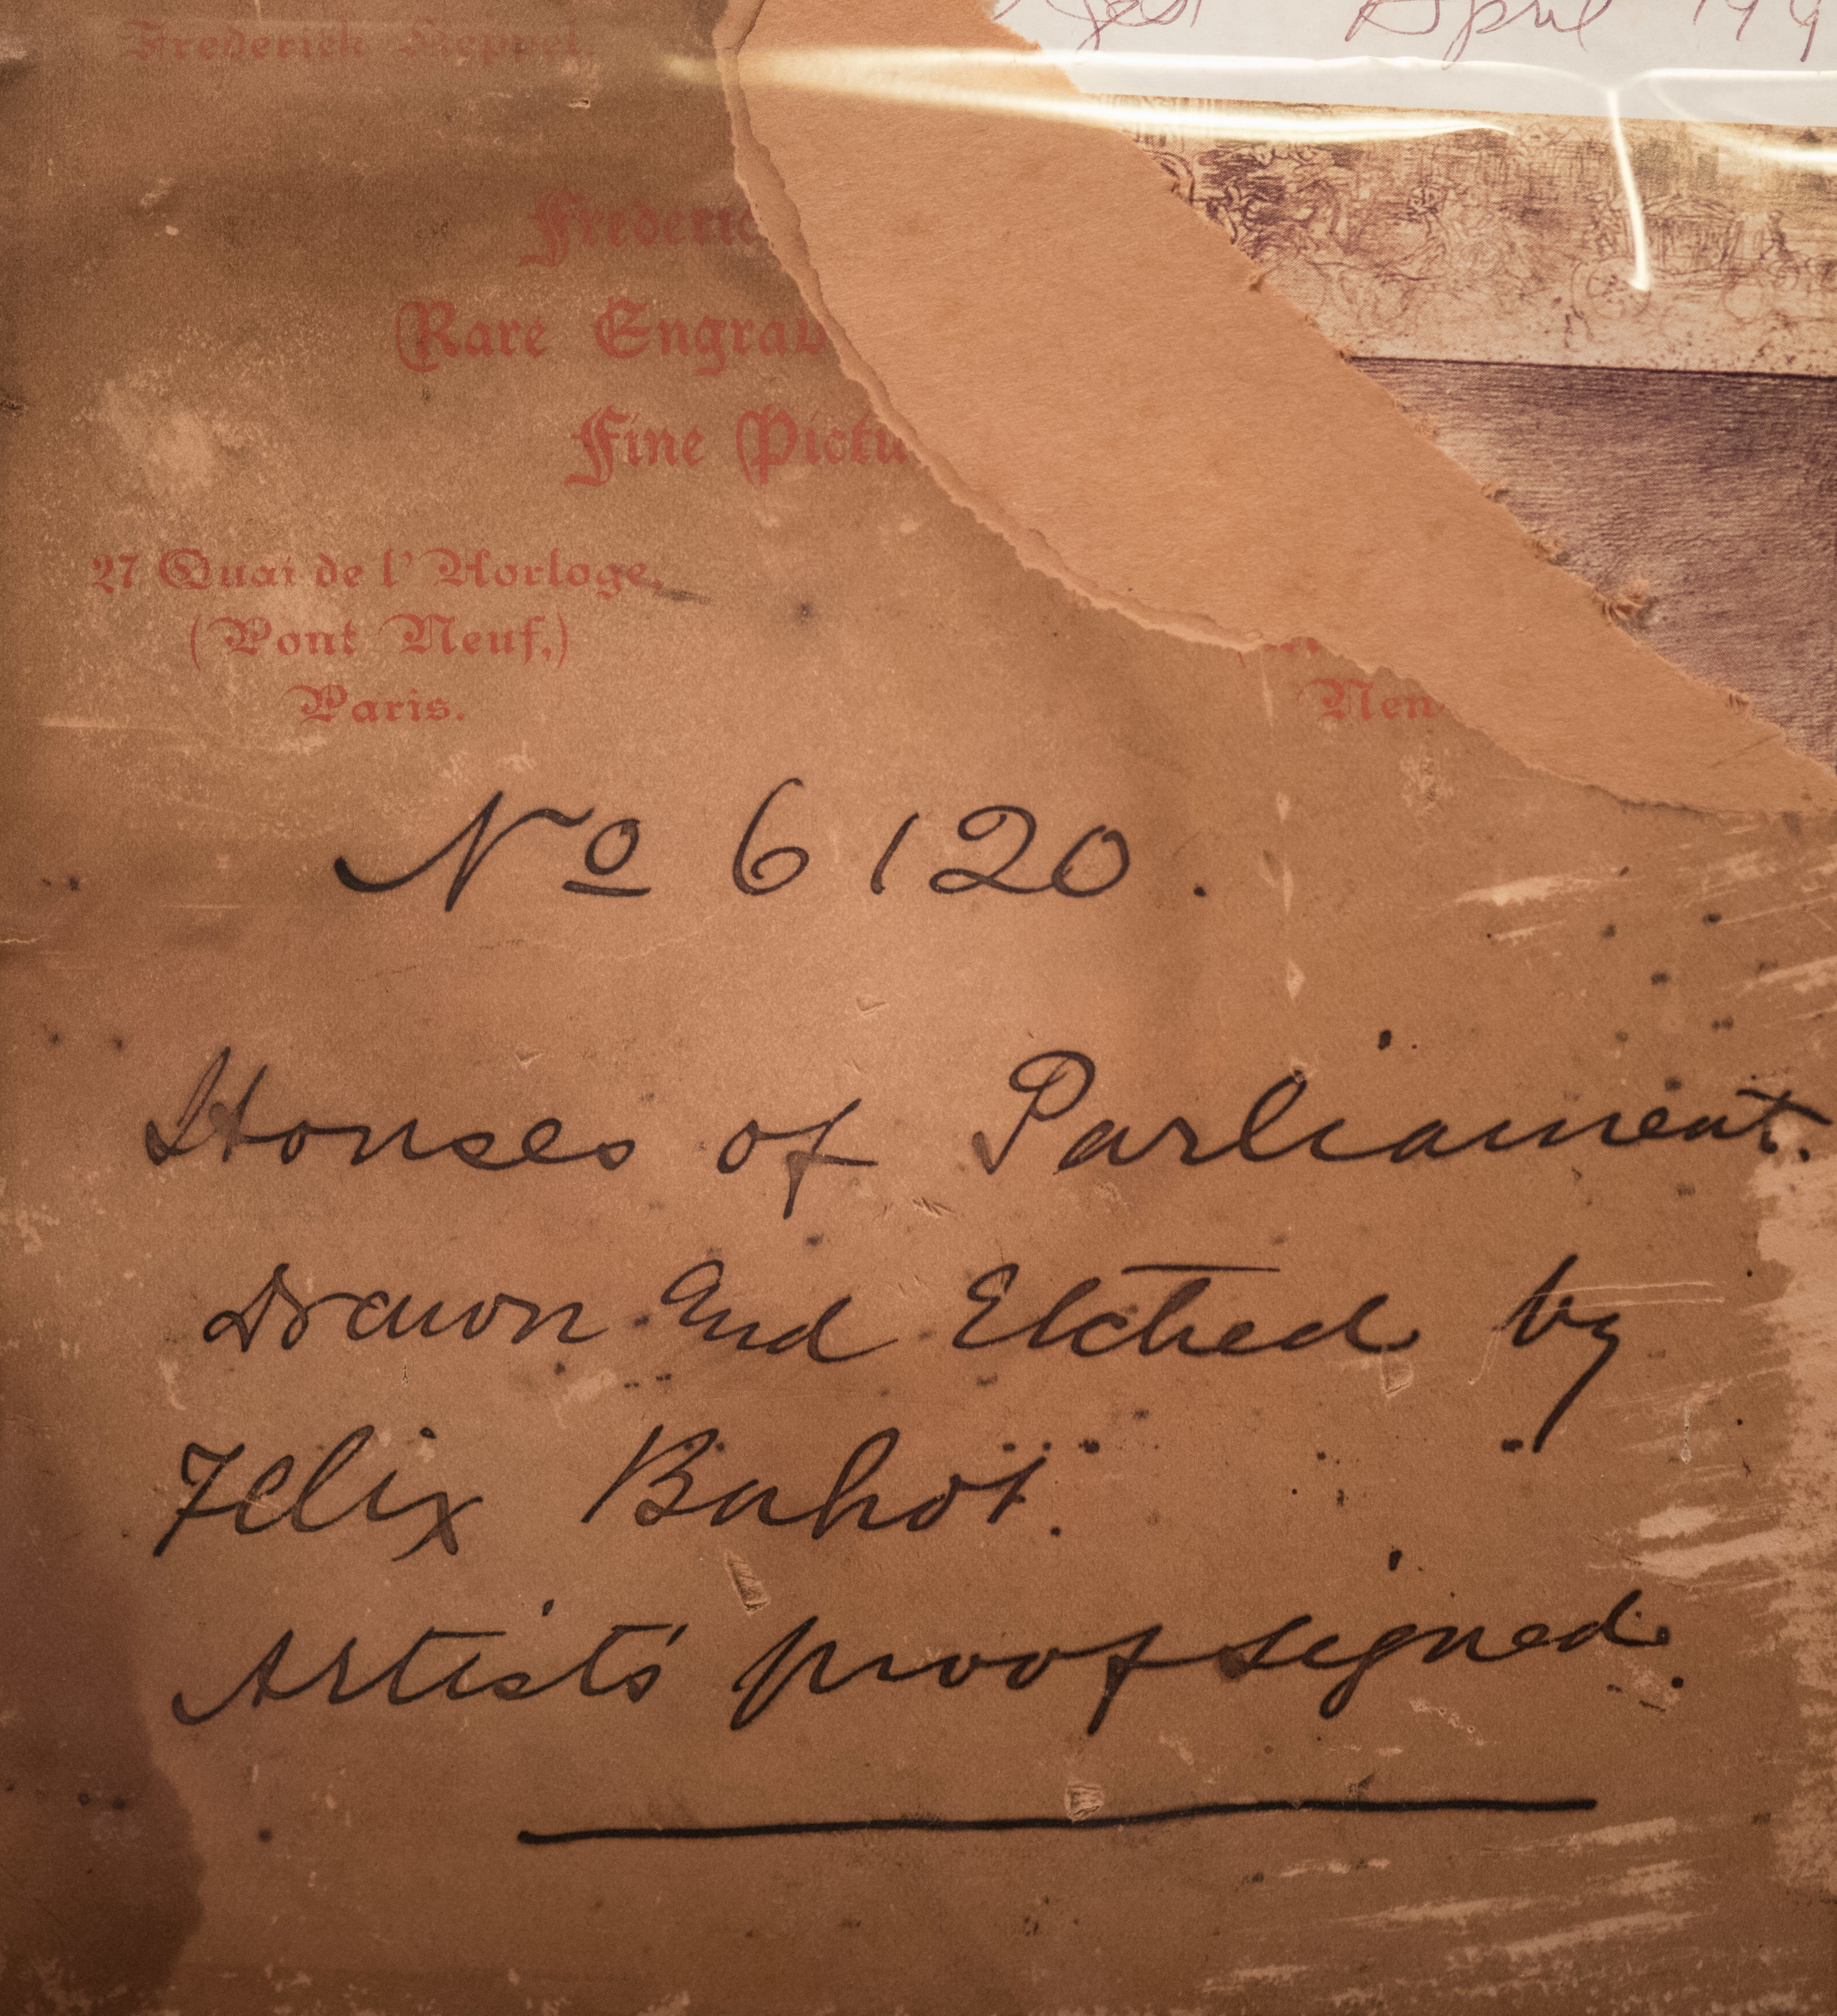 April 199
Frederick Keppel.
Frederic
Rare Engrav
Fine Pictu
27 Quai de l'Horloge,
(Pont Neuf,)
Paris.
New
No 6120.
Houses of Parliament.
Drawn And Etched by
Felix Buhot.
Artist's proof signed.